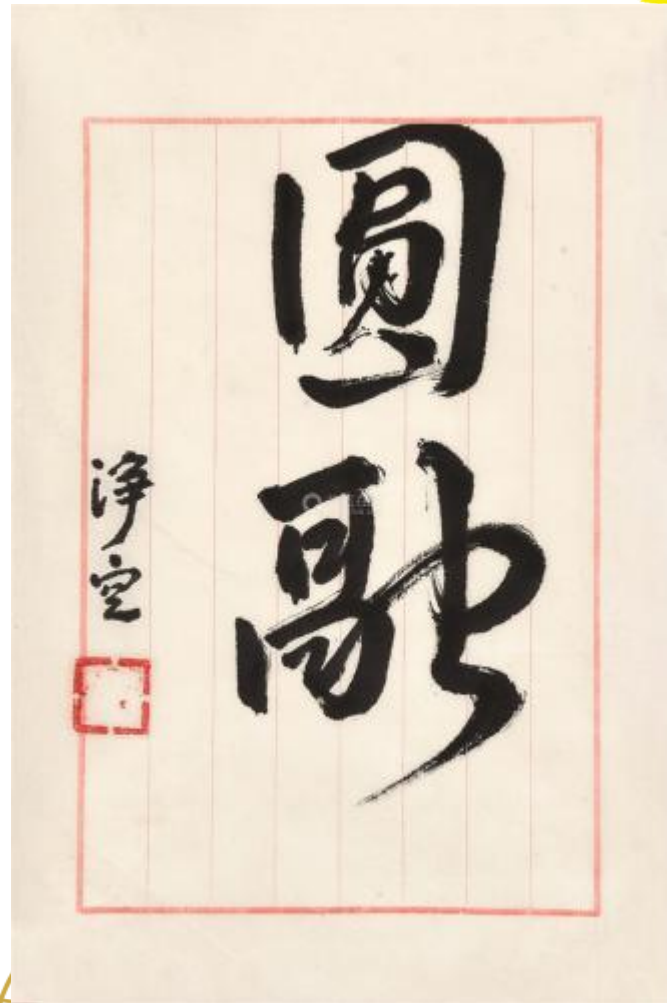 圓融
淨空